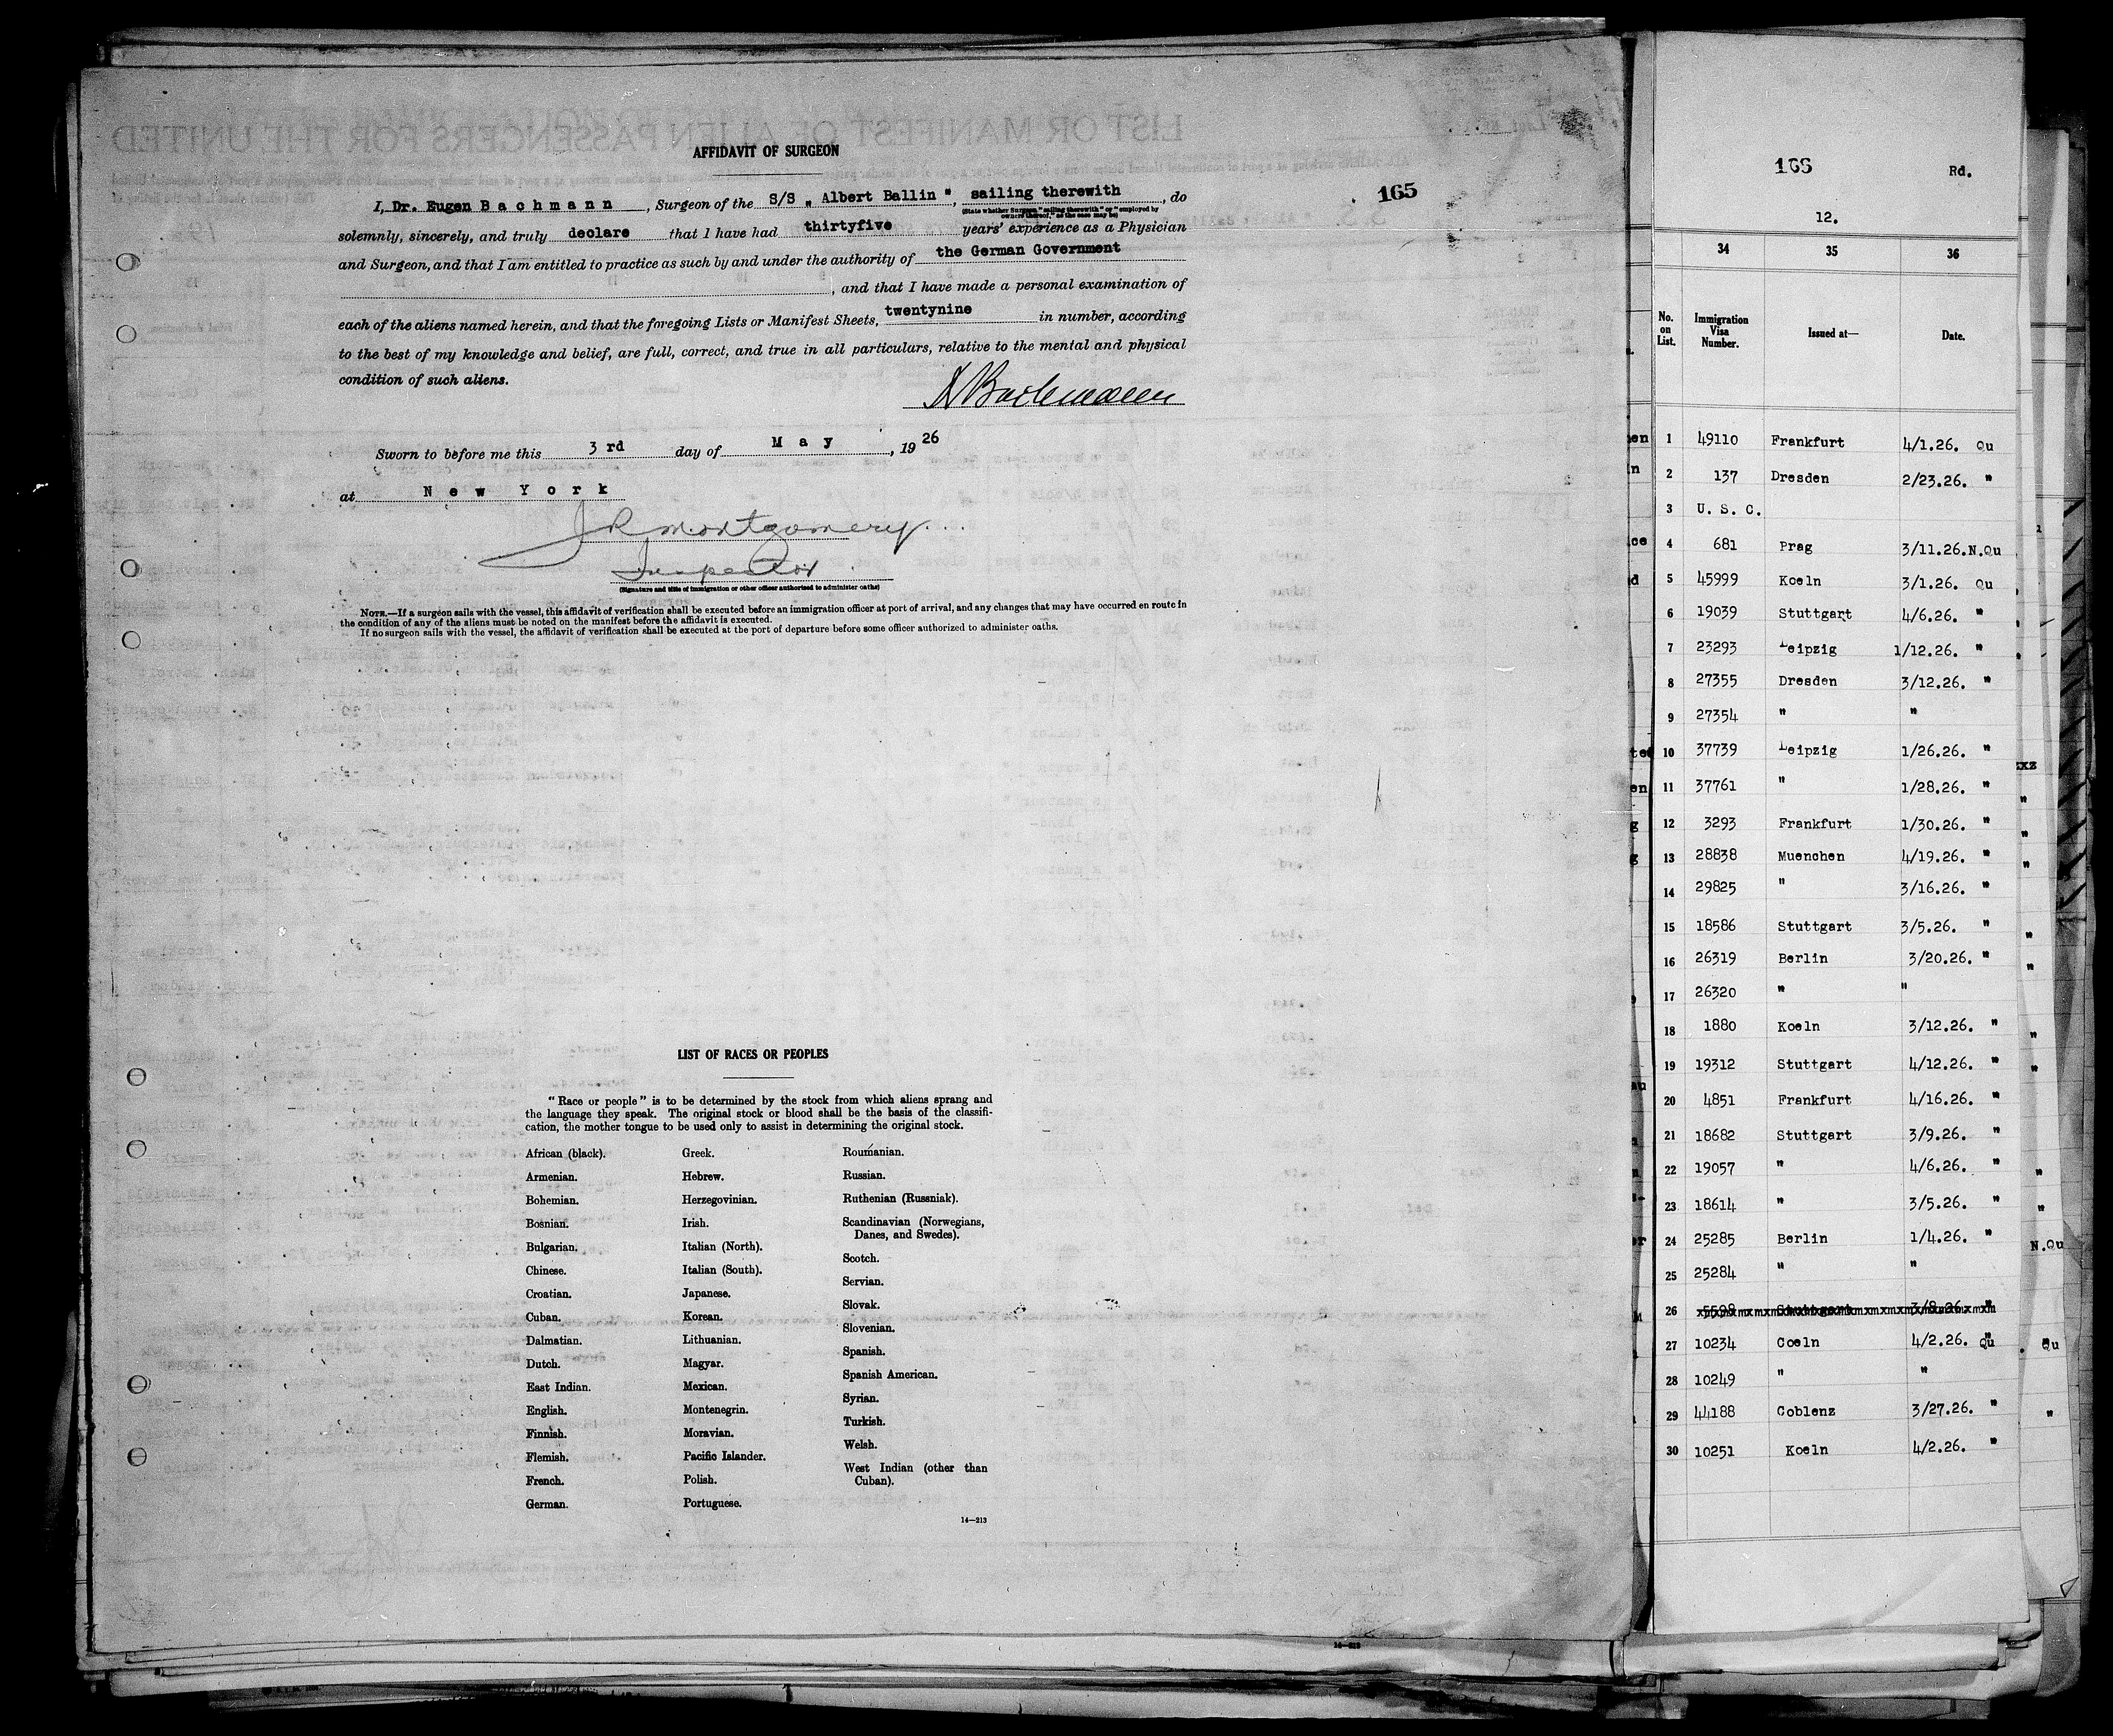 AFFIDAVIT OF SURGEON
165
I, Dr. Eugen Bachmann, Surgeon of the S/S „Albert Ballin", sailing therewith, do
(State whether Surgeon "sailing therewith" or "employed by owners thereof," as the case may be)
solemnly, sincerely, and truly declare that I have had thirtyfive years' experience as a Physician
and Surgeon, and that I am entitled to practice as such by and under the authority of the German Government
, and that I have made a personal examination of
each of the aliens named herein, and that the foregoing Lists or Manifest Sheets, twentynine in number, according
to the best of my knowledge and belief, are full, correct, and true in all particulars, relative to the mental and physical
condition of such aliens.
Bachmann
Sworn to before me this 3rd day of May, 1926
at New York
J R Montgomery
Inspector
(Signature and title of immigration or other officer authorized to administer oaths)
NOTE.—If a surgeon sails with the vessel, this affidavit of verification shall be executed before an immigration officer at port of arrival, and any changes that may have occurred en route in
the condition of any of the aliens must be noted on the manifest before the affidavit is executed.
If no surgeon sails with the vessel, the affidavit of verification shall be executed at the port of departure before some officer authorized to administer oaths.
LIST OF RACES OR PEOPLES
"Race or people" is to be determined by the stock from which aliens sprang and
the language they speak. The original stock or blood shall be the basis of the classifi-
cation, the mother tongue to be used only to assist in determining the original stock.
African (black).
Armenian.
Bohemian.
Bosnian.
Bulgarian.
Chinese.
Croatian.
Cuban.
Dalmatian.
Dutch.
East Indian.
English.
Finnish.
Flemish.
French.
German.
Greek.
Hebrew.
Herzegovinian.
Irish.
Italian (North).
Italian (South).
Japanese.
Korean.
Lithuanian.
Magyar.
Mexican.
Montenegrin.
Moravian.
Pacific Islander.
Polish.
Portuguese.
Roumanian.
Russian.
Ruthenian (Russniak).
Scandinavian (Norwegians,
Danes, and Swedes).
Scotch.
Servian.
Slovak.
Slovenian.
Spanish.
Spanish American.
Syrian.
Turkish.
Welsh.
West Indian (other than
Cuban).
14—213
166 Rd.
12.
34 35 36
No. on List. Immigration Visa Number. Issued at— Date.
1 49110 Frankfurt 4/1.26. Qu
2 137 Dresden 2/23.26. "
3 U. S. C.
4 681 Prag 3/11.26. N.Qu
5 45999 Koeln 3/1.26. Qu
6 19039 Stuttgart 4/6.26. "
7 23293 Leipzig 1/12.26. "
8 27355 Dresden 3/12.26. "
9 27354 " "
10 37739 Leipzig 1/26.26. "
11 37761 " 1/28.26. "
12 3293 Frankfurt 1/30.26. "
13 28838 Muenchen 4/19.26. "
14 29825 " 3/16.26. "
15 18586 Stuttgart 3/5.26. "
16 26319 Berlin 3/20.26. "
17 26320 " "
18 1880 Koeln 3/12.26. "
19 19312 Stuttgart 4/12.26. "
20 4851 Frankfurt 4/16.26. "
21 18682 Stuttgart 3/9.26. "
22 19057 " 4/6.26. "
23 18614 " 3/5.26. "
24 25285 Berlin 1/4.26. "
25 25284 " "
26 5598 Stuttgart 3/8.26. "
27 10234 Coeln 4/2.26. Qu
28 10249 " "
29 44188 Coblenz 3/27.26. "
30 10251 Koeln 4/2.26. "
N.Qu
Qu
14—213